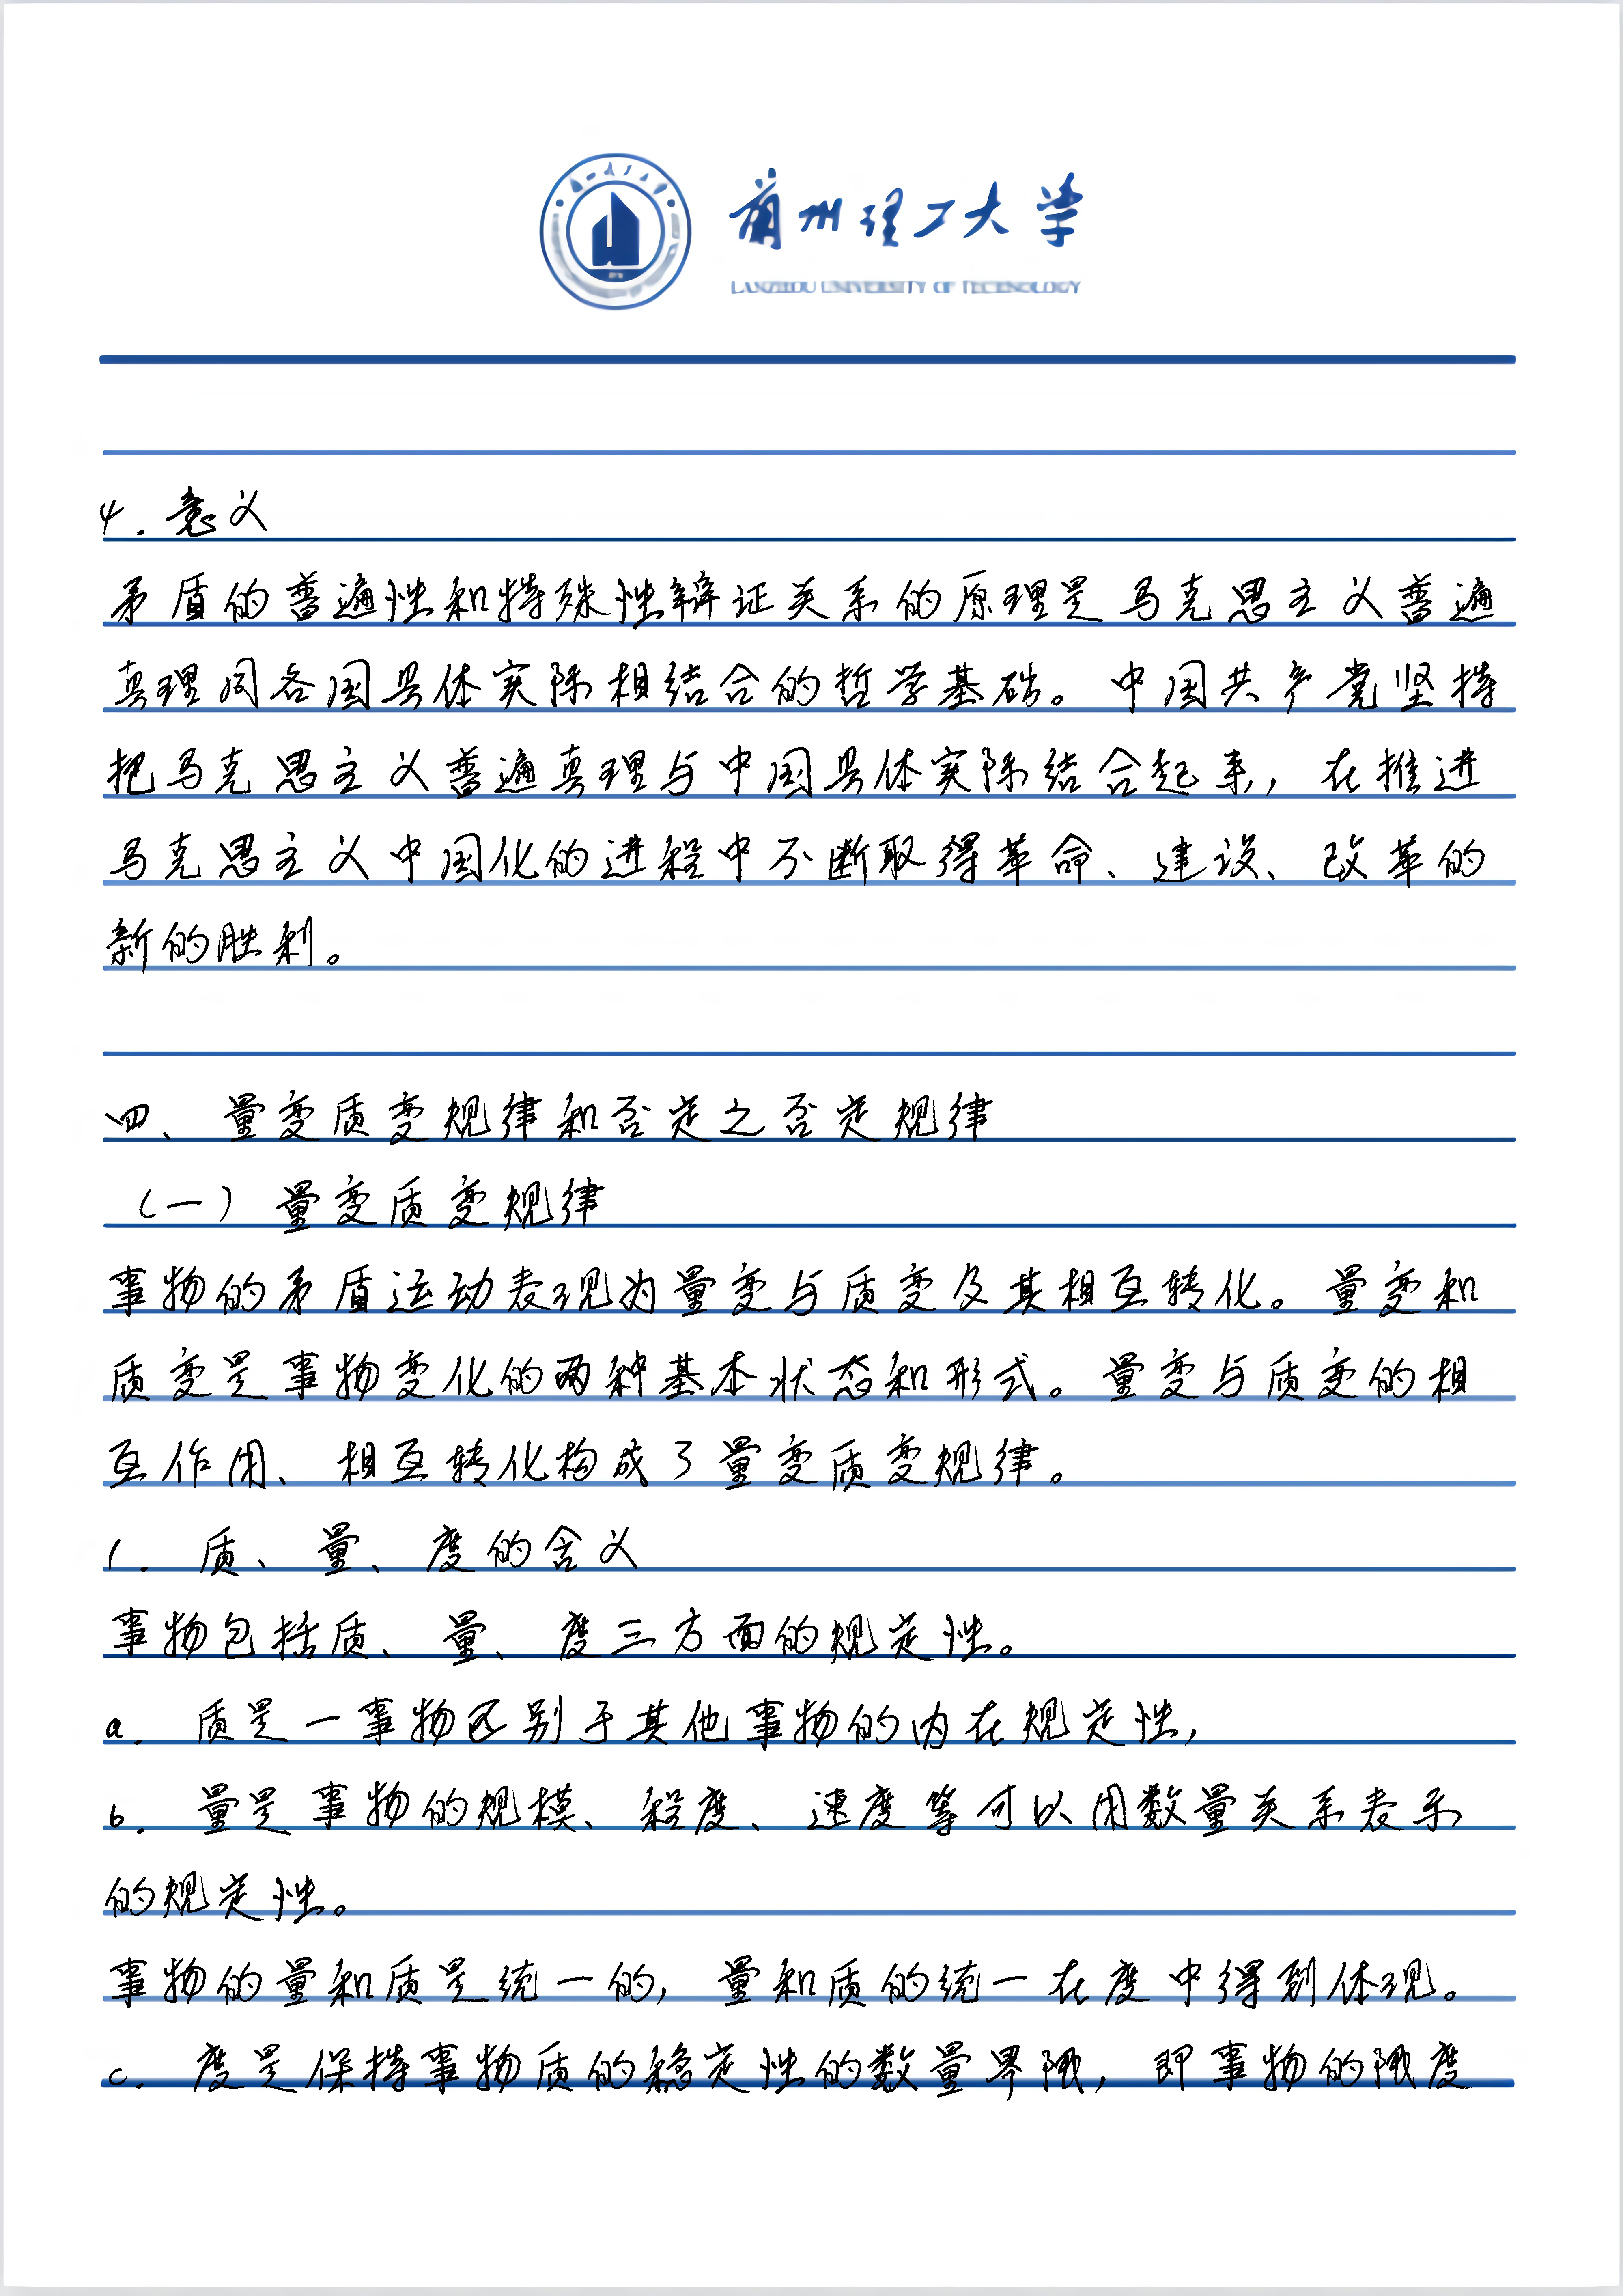 兰州理工大学
LANZHOU UNIVERSITY OF TECHNOLOGY
4. 意义
矛盾的普遍性和特殊性辩证关系的原理是马克思主义普遍
真理同各国具体实际相结合的哲学基础。中国共产党坚持
把马克思主义普遍真理与中国具体实际结合起来，在推进
马克思主义中国化的进程中不断取得革命、建设、改革的
新的胜利。
四、量变质变规律和否定之否定规律
（一）量变质变规律
事物的矛盾运动表现为量变与质变及其相互转化。量变和
质变是事物变化的两种基本状态和形式。量变与质变的相
互作用、相互转化构成了量变质变规律。
1. 质、量、度的含义
事物包括质、量、度三方面的规定性。
a. 质是一事物区别于其他事物的内在规定性，
b. 量是事物的规模、程度、速度等可以用数量关系表示
的规定性。
事物的量和质是统一的，量和质的统一在度中得到体现。
c. 度是保持事物质的稳定性的数量界限，即事物的限度